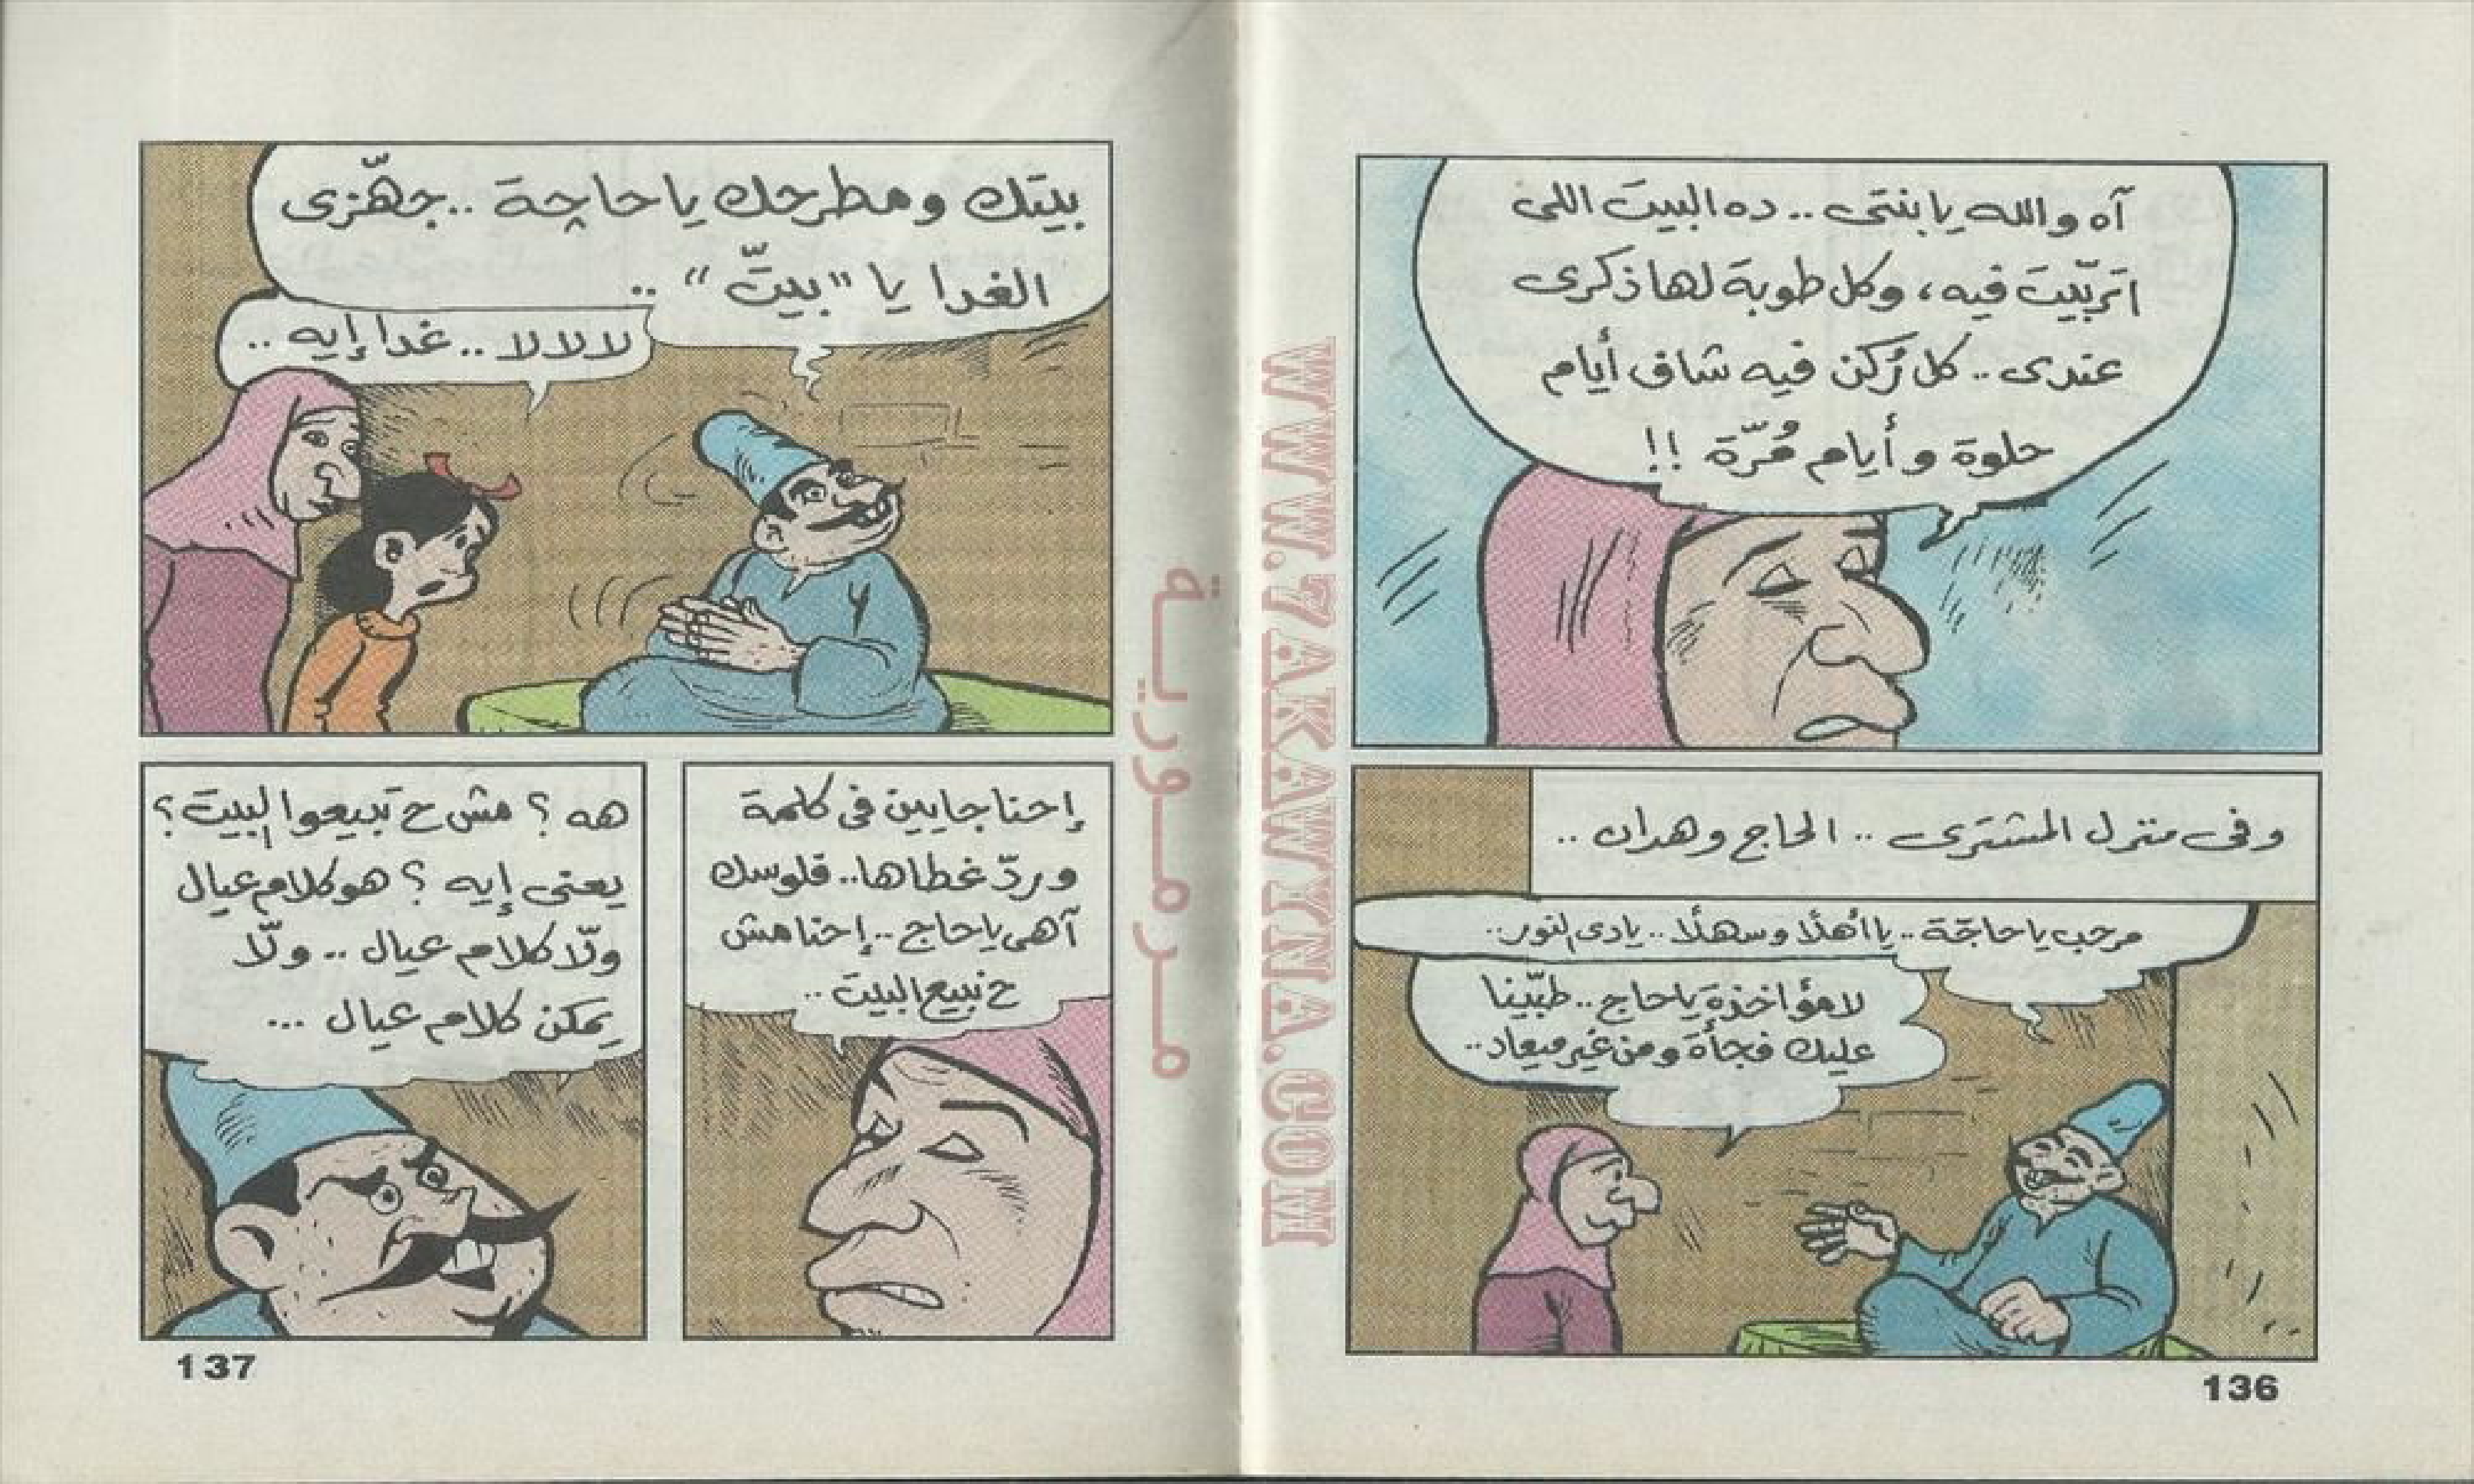 آه والله يا بنتى .. ده البيت اللى
اتربّيت فيه ، وكل طوبة لها ذكرى
عندى .. كل رُكن فيه شاف أيام
حلوة وأيام مُرّة !!
وفى منزل المشترى .. الحاج وهدان ..
مرحب يا حاجّة .. يا أهلًا وسهلًا .. يادى النور ..
لا مؤاخذة يا حاج .. طبّينا
عليك فجأة ومن غير ميعاد ..
136
بيتك ومطرحك يا حاجة .. جهّزى
الغدا يا "بيتّ" ..
لا لا لا .. غدا إيه ..
إحنا جايين فى كلمة
وردّ غطاها .. فلوسك
آهى يا حاج .. إحنا مش
ح نبيع البيت ..
هه ؟ مش ح تبيعوا البيت ؟
يعنى إيه ؟ هو كلام عيال
ولّا كلام عيال .. ولّا
يمكن كلام عيال ...
137
WWW.7AKAWYNA.COM
مرمورية